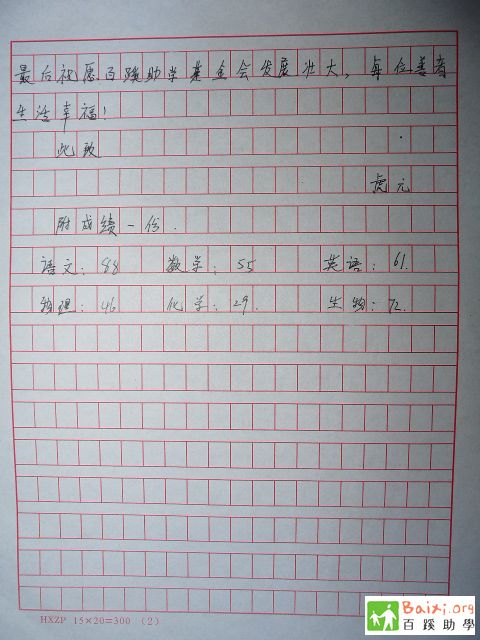 最后祝愿百蹊助学基金会发展壮大，每位善者
生活幸福！
此致
虎元
附成绩一份.
语文：88 数学：55 英语：61.
物理：46 化学：29. 生物：72.
HXZP 15×20=300 (2)
Baixi.org
百蹊助學